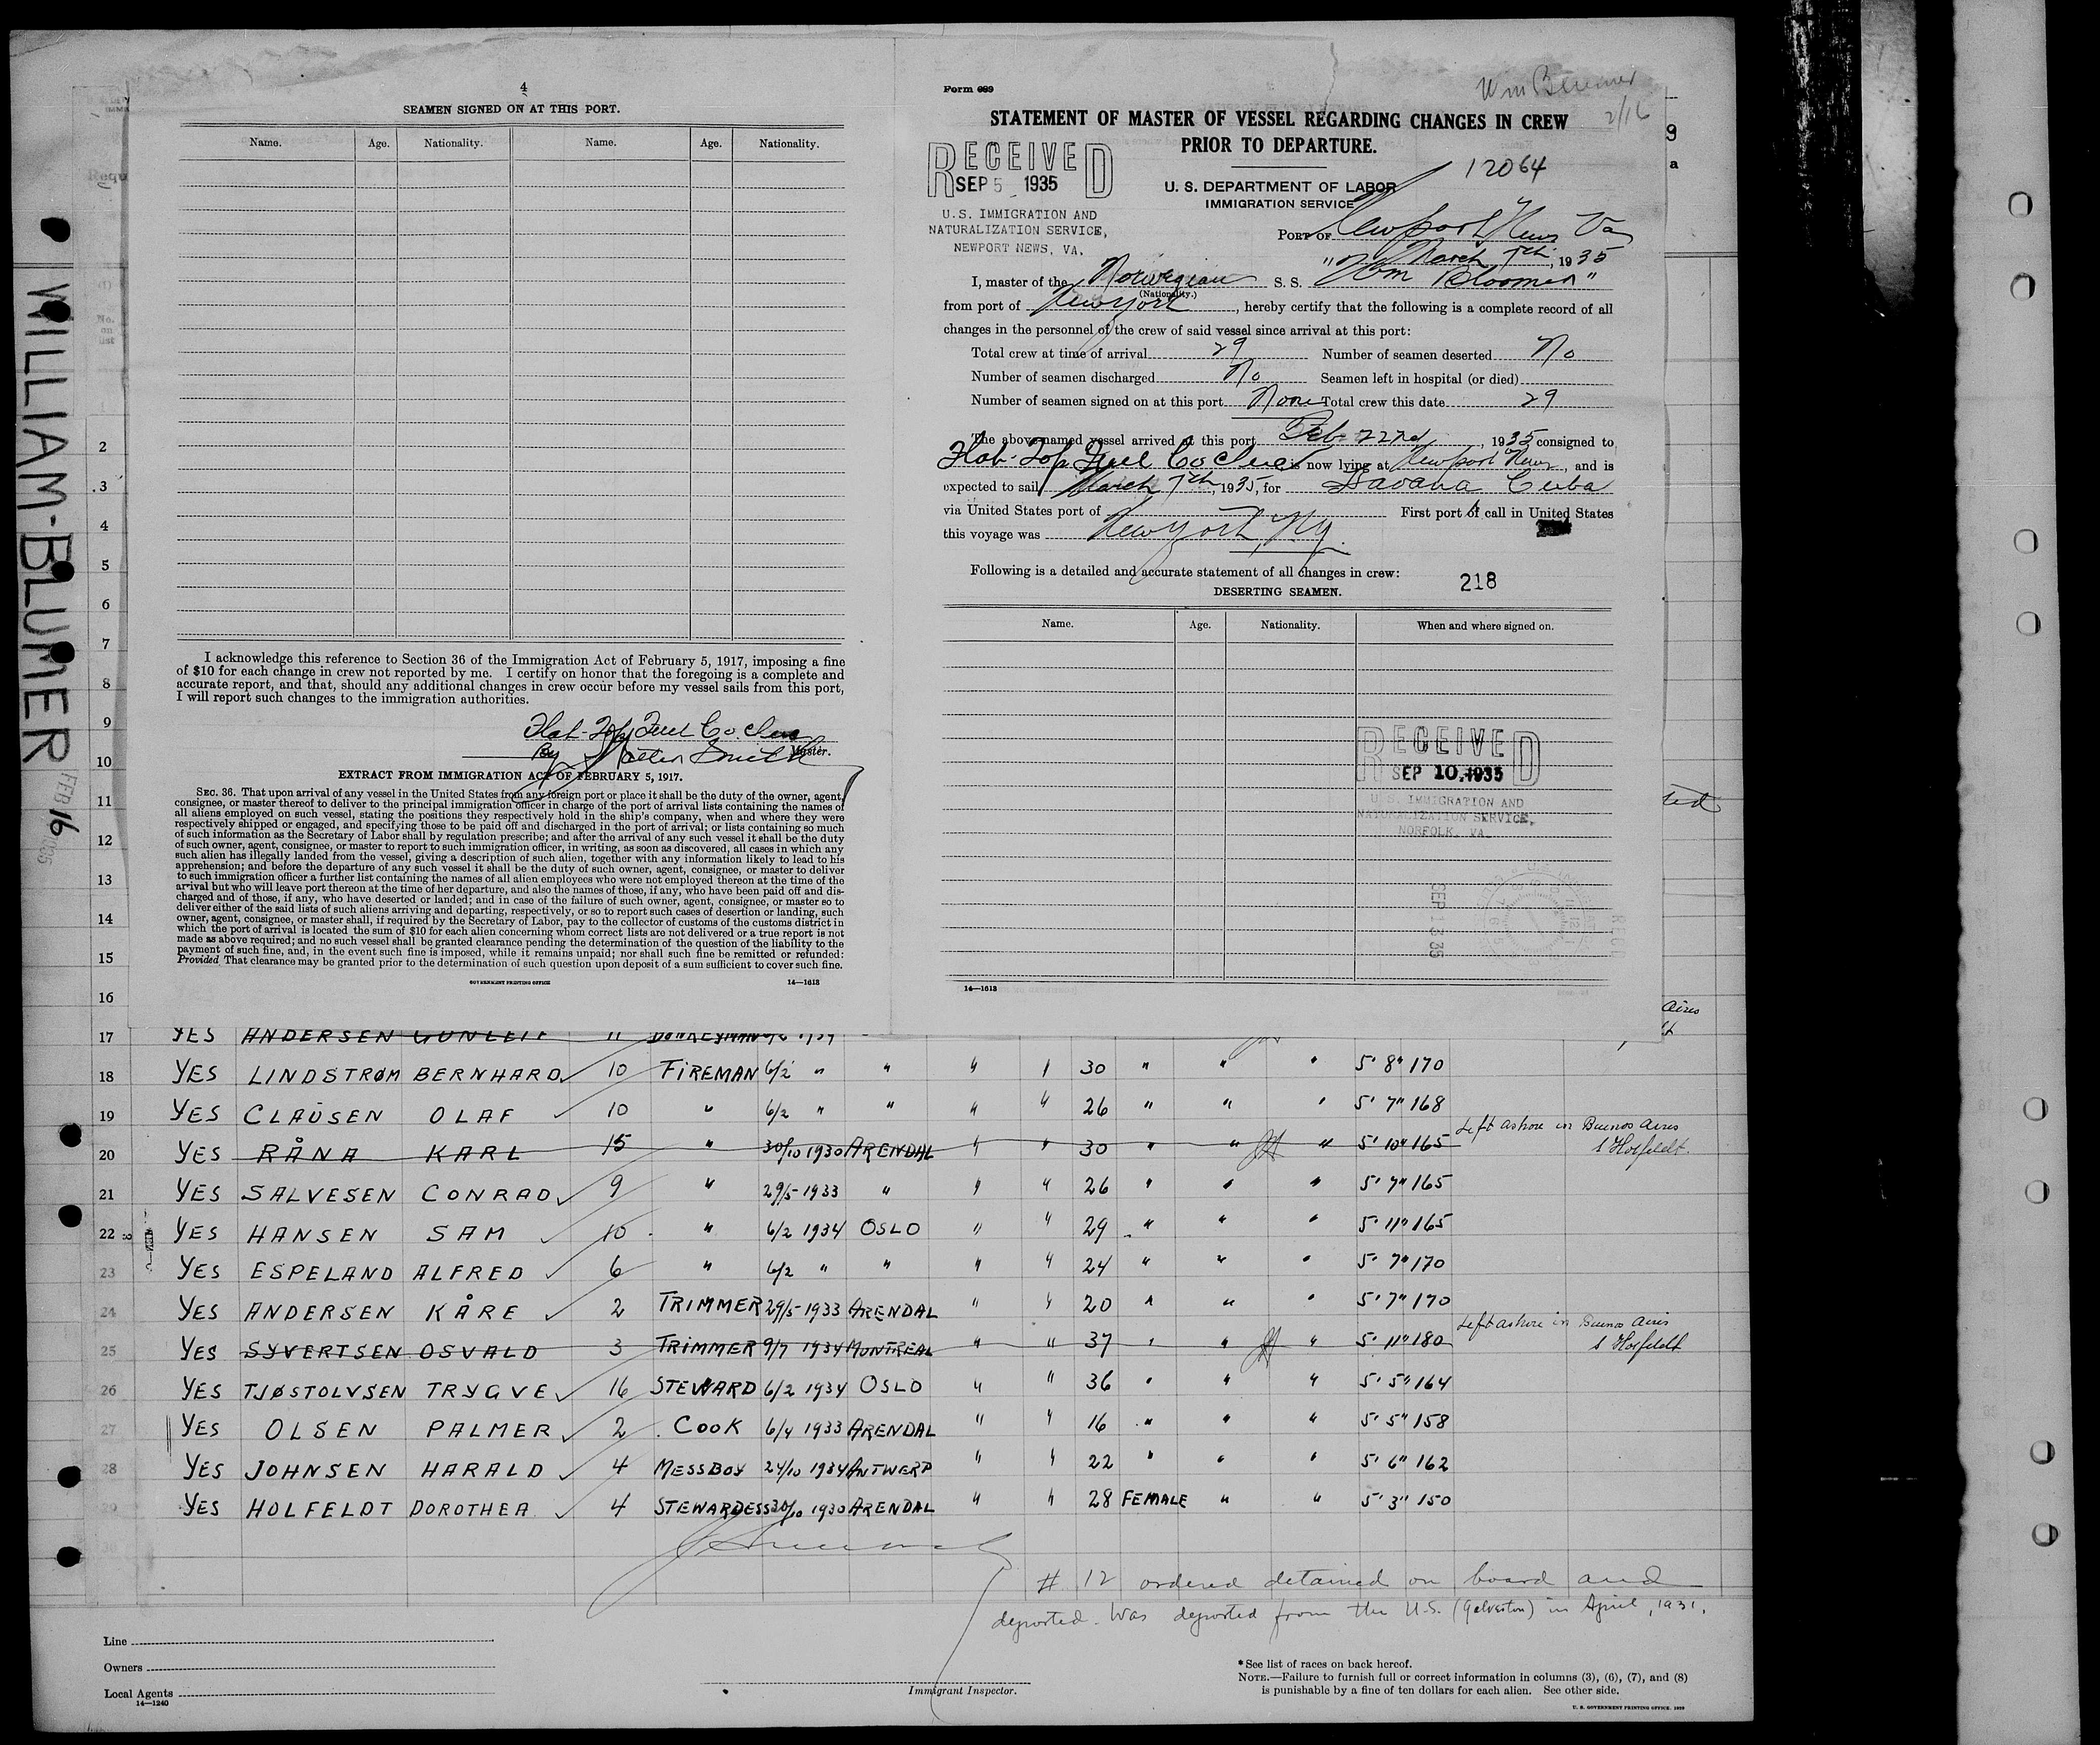 WILLIAM-BLUMER
FEB 16 1935
4
SEAMEN SIGNED ON AT THIS PORT.
Name. Age. Nationality. Name. Age. Nationality.
I acknowledge this reference to Section 36 of the Immigration Act of February 5, 1917, imposing a fine
of $10 for each change in crew not reported by me. I certify on honor that the foregoing is a complete and
accurate report, and that, should any additional changes in crew occur before my vessel sails from this port,
I will report such changes to the immigration authorities.
Flat-Top Fuel Co Inc
By Walter Smith Master.
EXTRACT FROM IMMIGRATION ACT OF FEBRUARY 5, 1917.
SEC. 36. That upon arrival of any vessel in the United States from any foreign port or place it shall be the duty of the owner, agent,
consignee, or master thereof to deliver to the principal immigration officer in charge of the port of arrival lists containing the names of
all aliens employed on such vessel, stating the positions they respectively hold in the ship's company, when and where they were
respectively shipped or engaged, and specifying those to be paid off and discharged in the port of arrival; or lists containing so much
of such information as the Secretary of Labor shall by regulation prescribe; and after the arrival of any such vessel it shall be the duty
of such owner, agent, consignee, or master to report to such immigration officer, in writing, as soon as discovered, all cases in which any
such alien has illegally landed from the vessel, giving a description of such alien, together with any information likely to lead to his
apprehension; and before the departure of any such vessel it shall be the duty of such owner, agent, consignee, or master to deliver
to such immigration officer a further list containing the names of all alien employees who were not employed thereon at the time of the
arrival but who will leave port thereon at the time of her departure, and also the names of those, if any, who have been paid off and dis-
charged and of those, if any, who have deserted or landed; and in case of the failure of such owner, agent, consignee, or master so to
deliver either of the said lists of such aliens arriving and departing, respectively, or so to report such cases of desertion or landing, such
owner, agent, consignee, or master shall, if required by the Secretary of Labor, pay to the collector of customs of the customs district in
which the port of arrival is located the sum of $10 for each alien concerning whom correct lists are not delivered or a true report is not
made as above required; and no such vessel shall be granted clearance pending the determination of the question of the liability to the
payment of such fine, and, in the event such fine is imposed, while it remains unpaid; nor shall such fine be remitted or refunded:
Provided That clearance may be granted prior to the determination of such question upon deposit of a sum sufficient to cover such fine.
GOVERNMENT PRINTING OFFICE 14—1613
Form 689
2/16
STATEMENT OF MASTER OF VESSEL REGARDING CHANGES IN CREW
PRIOR TO DEPARTURE.
12064
RECEIVED
SEP 5 1935
U.S. IMMIGRATION AND
NATURALIZATION SERVICE,
NEWPORT NEWS, VA.
U. S. DEPARTMENT OF LABOR
IMMIGRATION SERVICE
PORT OF Newport News Va
March 7th, 1935
I, master of the Norwegian S. S. "Wm Bloomer"
(Nationality.)
from port of New York, hereby certify that the following is a complete record of all
changes in the personnel of the crew of said vessel since arrival at this port:
Total crew at time of arrival 29 Number of seamen deserted No
Number of seamen discharged No Seamen left in hospital (or died)
Number of seamen signed on at this port None Total crew this date 29
The above-named vessel arrived at this port Feb. 22nd, 1935 consigned to
Flat-Top Fuel Co Inc is now lying at Newport News, and is
expected to sail March 7th, 1935, for Havana Cuba
via United States port of First port of call in United States
this voyage was New York, NY.
Following is a detailed and accurate statement of all changes in crew: 218
DESERTING SEAMEN.
Name. Age. Nationality. When and where signed on.
RECEIVED
SEP 10 1935
U.S. IMMIGRATION AND
NATURALIZATION SERVICE,
NORFOLK, VA.
SEP 13 35
14—1613
2
3
4
5
6
7
8
9
10
11
12
13
14
15
16
17 YES ANDERSEN GUNLEIF 11 DONKEYMAN 6/2 1934
18 YES LINDSTRØM BERNHARD 10 FIREMAN 6/2 " " " " 30 " " " 5' 8" 170
19 YES CLAUSEN OLAF 10 " 6/2 " " " " 26 " " " 5' 7" 168
20 YES RÅNA KARL 15 " 30/10 1930 ARENDAL " " 30 " " " 5' 10" 165 Left ashore in Buenos Aires
21 YES SALVESEN CONRAD 9 " 29/5 1933 " " " 26 " " " 5' 7" 165
22 YES HANSEN SAM 10 " 6/2 1934 OSLO " " 29 " " " 5' 11" 165
23 YES ESPELAND ALFRED 6 " 6/2 " " " " 24 " " " 5' 7" 170
24 YES ANDERSEN KÅRE 2 TRIMMER 29/5 1933 ARENDAL " " 20 " " " 5' 7" 170
25 YES SYVERTSEN OSVALD 3 TRIMMER 9/7 1934 MONTREAL " " 37 " " " 5' 11" 180 Left ashore in Buenos Aires
26 YES TJØSTOLVSEN TRYGVE 16 STEWARD 6/2 1934 OSLO " " 36 " " " 5' 5" 164
27 YES OLSEN PALMER 2 COOK 6/4 1933 ARENDAL " " 16 " " " 5' 5" 158
28 YES JOHNSEN HARALD 4 MESSBOY 24/10 1934 ANTWERP " " 22 " " " 5' 6" 162
29 YES HOLFELDT DOROTHEA 4 STEWARDESS 30/10 1930 ARENDAL " " 28 FEMALE " " 5' 3" 150
30
# 12 ordered detained on board and
deported. Was deported from the U.S. (Galveston) in April, 1931.
Line
Owners
Local Agents
14—1240
Immigrant Inspector.
*See list of races on back hereof.
NOTE.—Failure to furnish full or correct information in columns (3), (6), (7), and (8)
is punishable by a fine of ten dollars for each alien. See other side.
U. S. GOVERNMENT PRINTING OFFICE